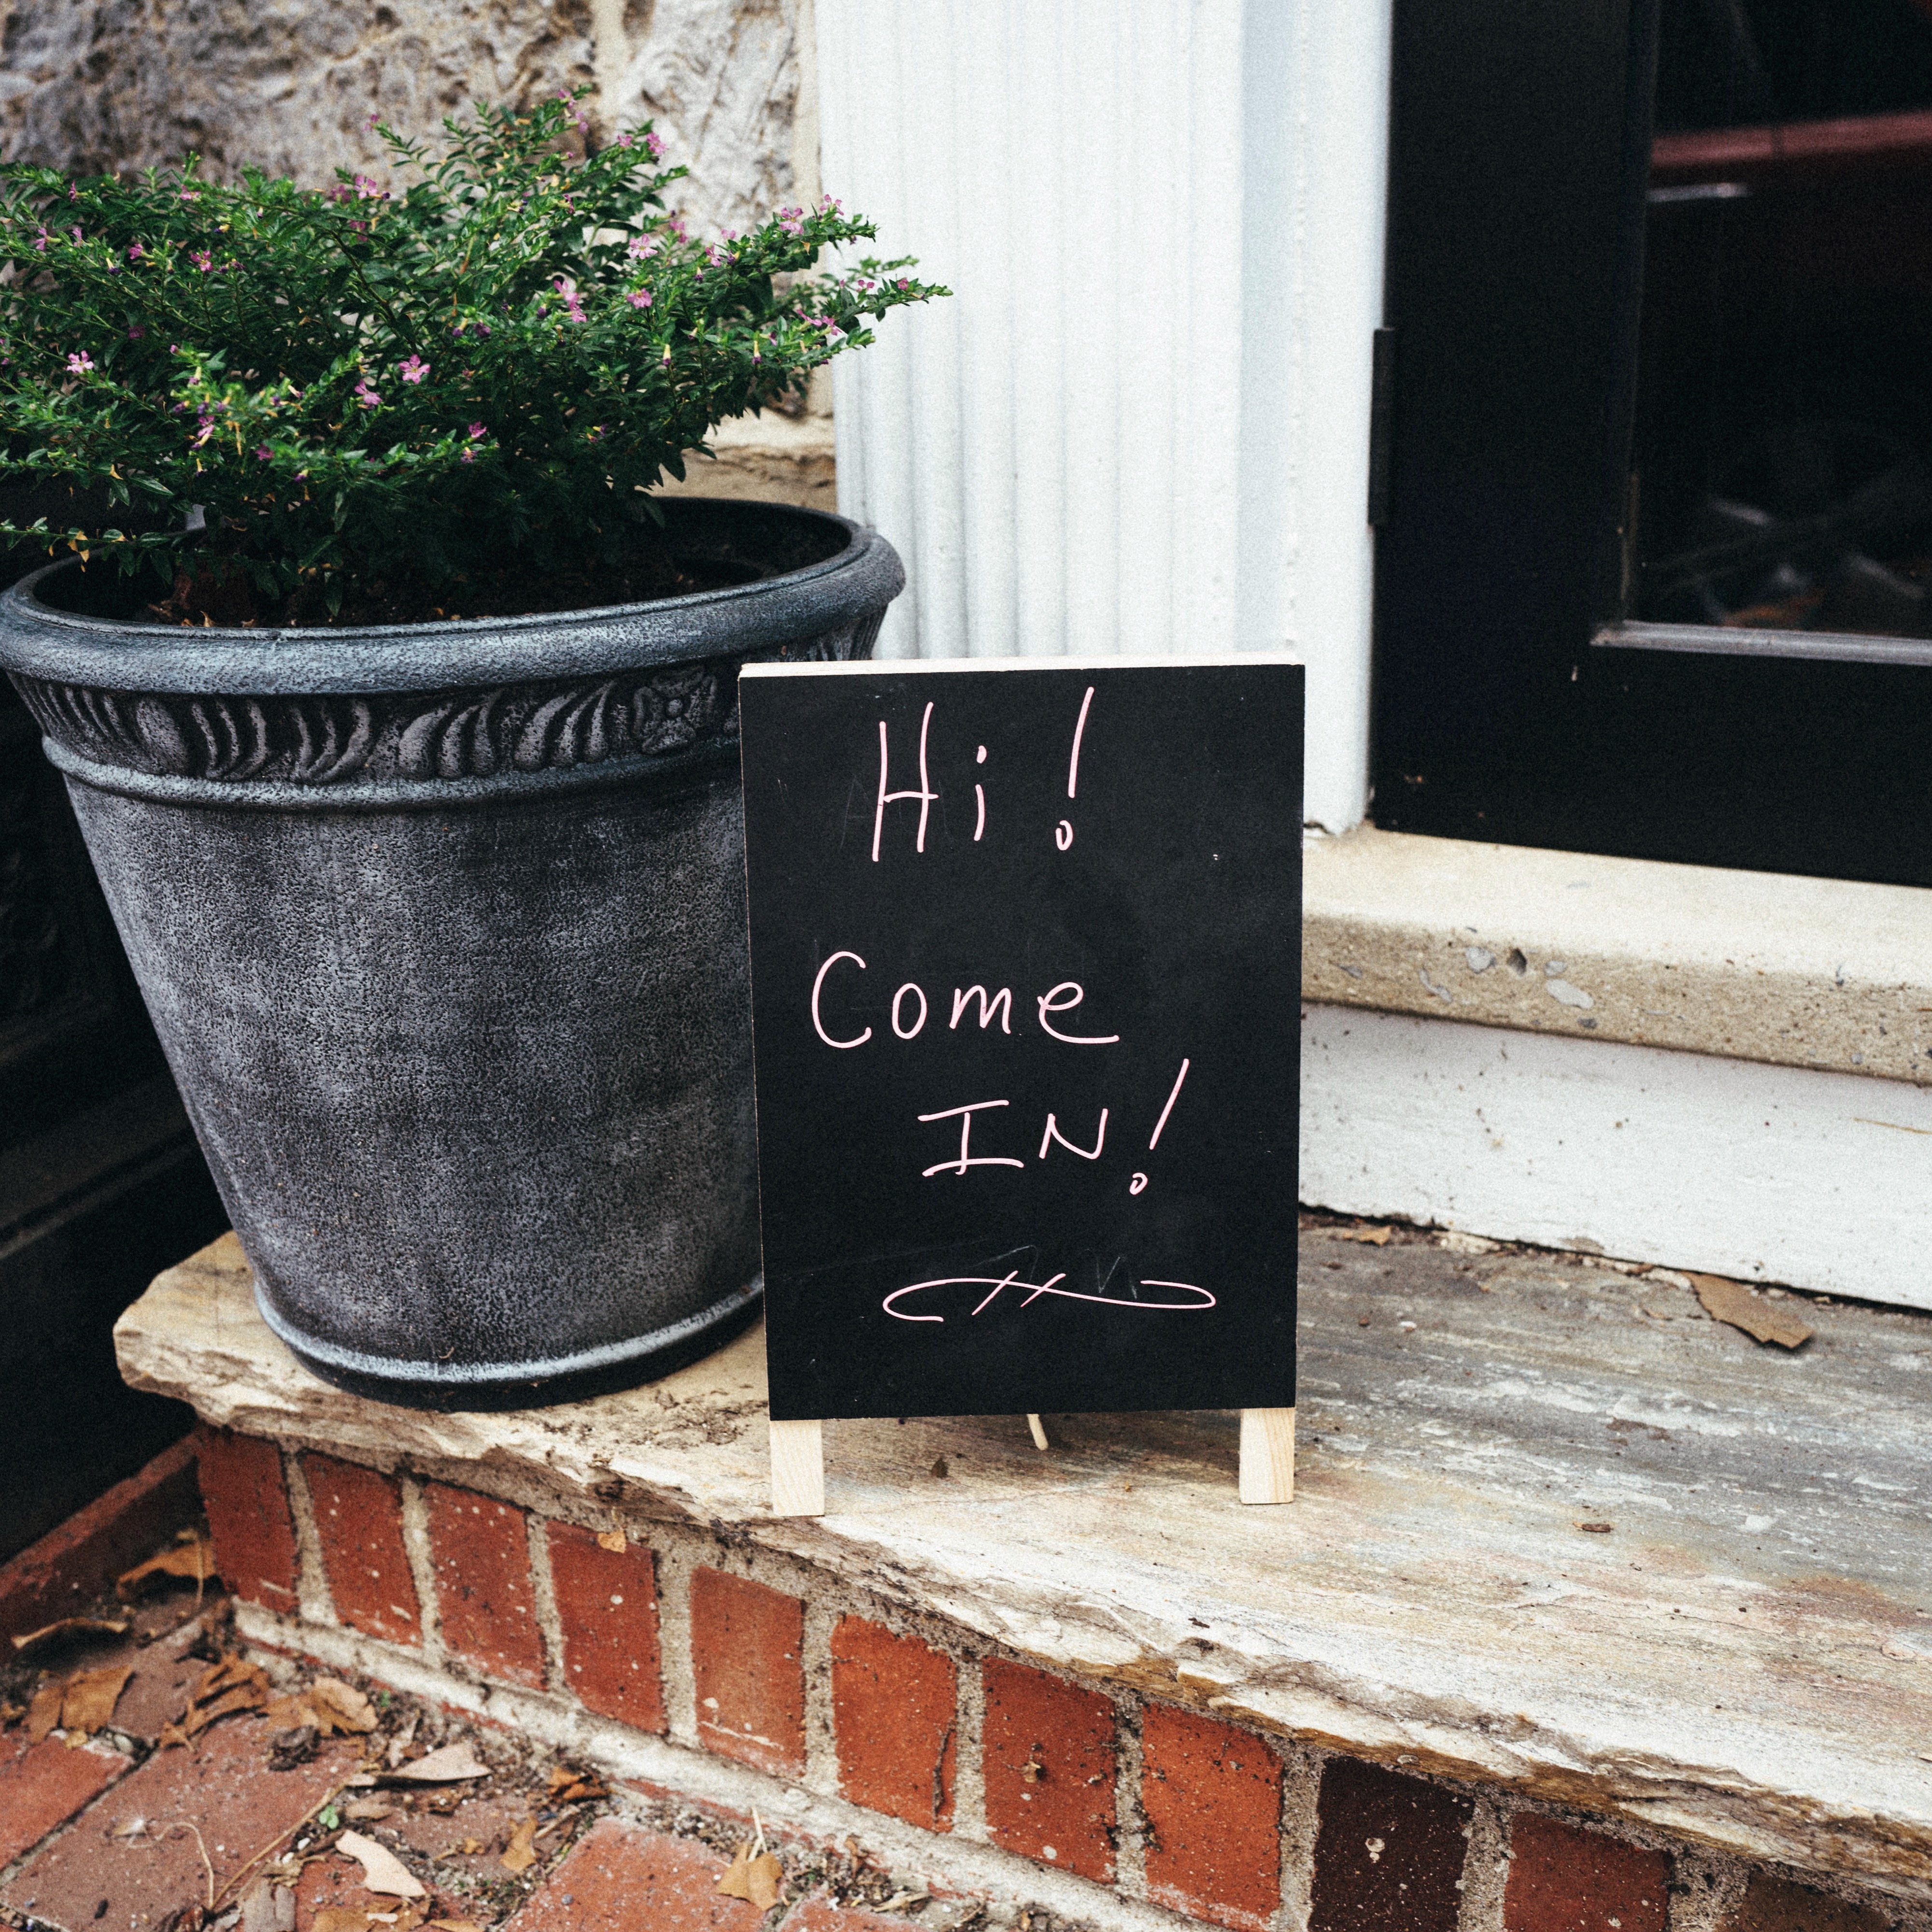 Hi!
Come
IN!